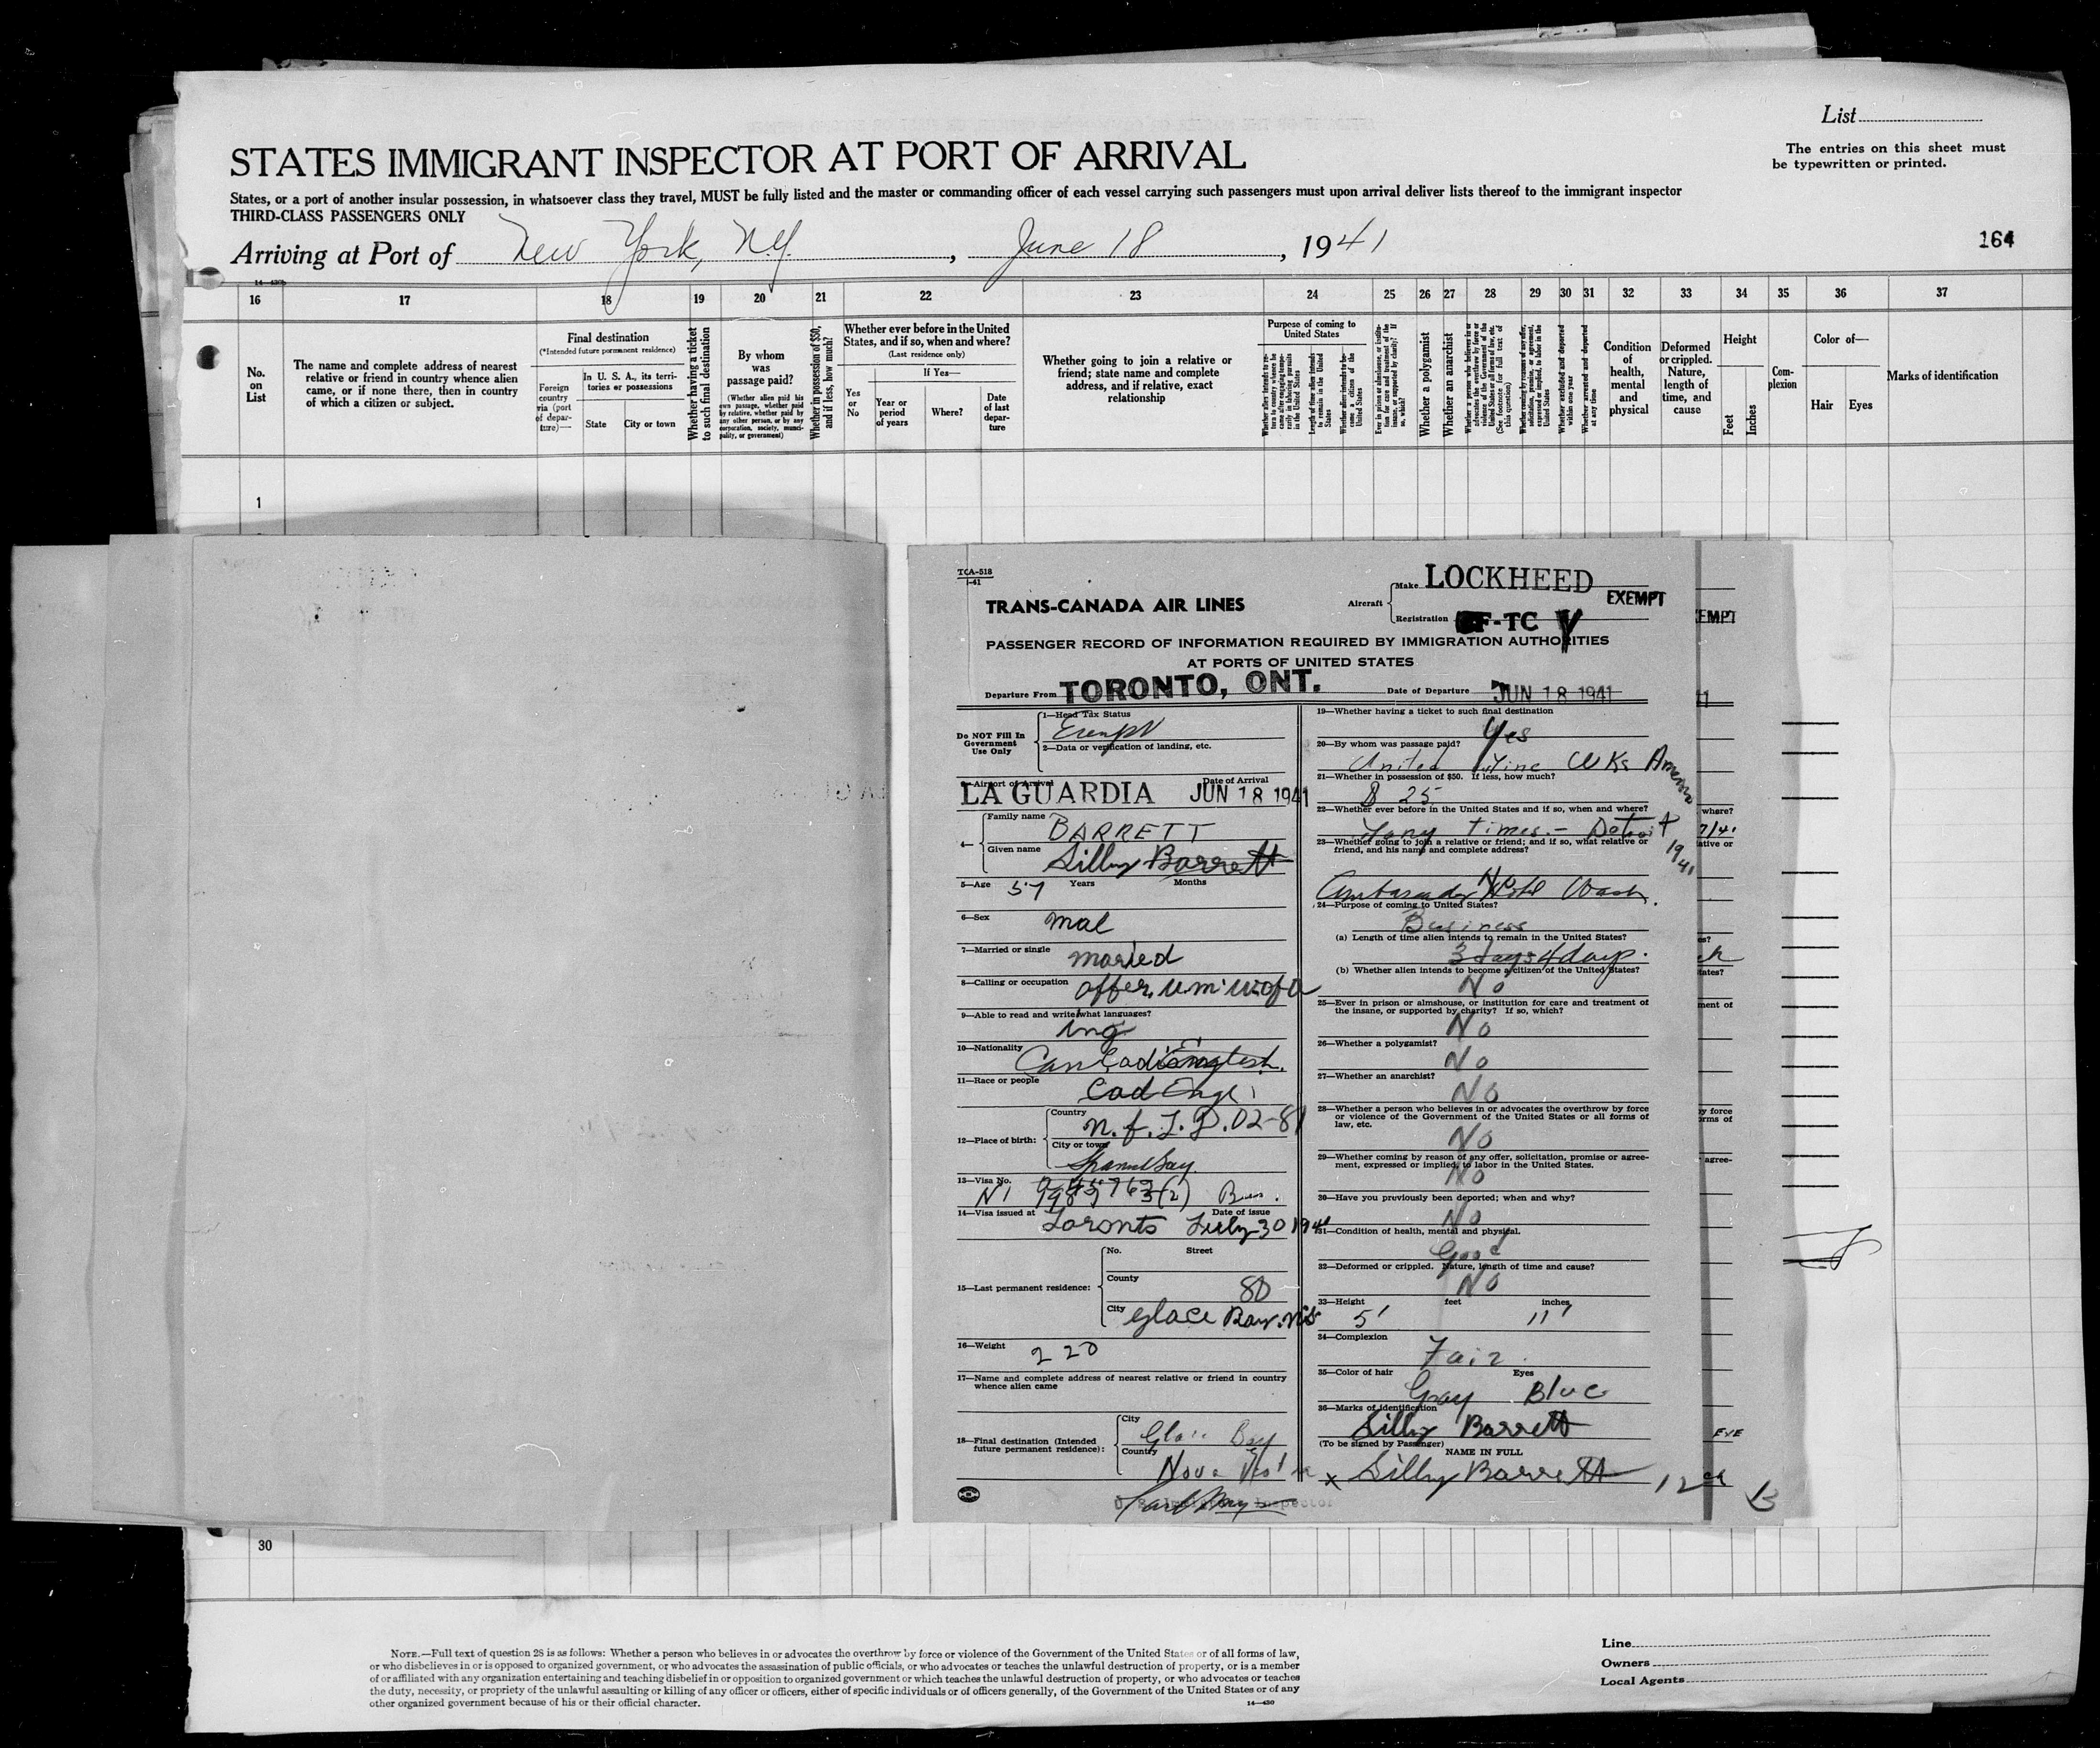 List
The entries on this sheet must
be typewritten or printed.
STATES IMMIGRANT INSPECTOR AT PORT OF ARRIVAL
States, or a port of another insular possession, in whatsoever class they travel, MUST be fully listed and the master or commanding officer of each vessel carrying such passengers must upon arrival deliver lists thereof to the immigrant inspector
THIRD-CLASS PASSENGERS ONLY
Arriving at Port of New York, N.Y., June 18, 1941
164
16 17 18 19 20 21 22 23 24 25 26 27 28 29 30 31 32 33 34 35 36 37
No. on List
The name and complete address of nearest
relative or friend in country whence alien
came, or if none there, then in country
of which a citizen or subject.
Final destination
(*Intended future permanent residence)
Foreign country via (port of departure)—
In U. S. A., its territories or possessions
State
City or town
Whether having a ticket to such final destination
By whom was passage paid?
(Whether alien paid his own passage, whether paid by relative, whether paid by any other person, or by any corporation, society, municipality, or government)
Whether in possession of $50, and if less, how much?
Whether ever before in the United
States, and if so, when and where?
(Last residence only)
Yes or No
If Yes—
Year or period of years
Where?
Date of last departure
Whether going to join a relative or
friend; state name and complete
address, and if relative, exact
relationship
Purpose of coming to
United States
Length of time alien intends to remain in the United States
Whether alien intends to become a citizen of the United States
Whether a polygamist
Whether an anarchist
Whether arrested and deported at any time
Condition of health, mental and physical
Deformed or crippled. Nature, length of time, and cause
Height
Feet
Inches
Complexion
Color of—
Hair
Eyes
Marks of identification
1
TCA-518
1-41
TRANS-CANADA AIR LINES
Aircraft
Make LOCKHEED
Registration CF-TC V
EXEMPT
PASSENGER RECORD OF INFORMATION REQUIRED BY IMMIGRATION AUTHORITIES
AT PORTS OF UNITED STATES
Departure From TORONTO, ONT.
Date of Departure JUN 18 1941
Do NOT Fill In
Government
Use Only
1—Head Tax Status
Exempt
2—Data or verification of landing, etc.
3—Airport of Arrival
Date of Arrival
LA GUARDIA JUN 18 1941
4—
Family name BARRETT
Given name Silby Barrett
5—Age 57 Years Months
6—Sex mal
7—Married or single maried
8—Calling or occupation offer. u.m.w of a
9—Able to read and write/what languages?
ing
10—Nationality
11—Race or people
Cad Engl
12—Place of birth:
Country n.f.L.D. 02-81
City or town
13—Visa No.
14—Visa issued at Toronto
Date of issue July 30 1940
15—Last permanent residence:
No. Street
County 80
City Glace Bay. N.S
16—Weight 220
17—Name and complete address of nearest relative or friend in country
whence alien came
18—Final destination (Intended
future permanent residence):
City Glace Bay
Country Nova Scotia
19—Whether having a ticket to such final destination
Yes
20—By whom was passage paid?
United Mine WKs America
21—Whether in possession of $50. If less, how much?
$ 25
22—Whether ever before in the United States and if so, when and where?
Many times.— Detroit 1941
23—Whether going to join a relative or friend; and if so, what relative or
friend, and his name and complete address?
No
Ambassador Hotel Wash.
24—Purpose of coming to United States?
Business
(a) Length of time alien intends to remain in the United States?
3 days 4 days.
(b) Whether alien intends to become a citizen of the United States?
No
25—Ever in prison or almshouse, or institution for care and treatment of
the insane, or supported by charity? If so, which?
No
26—Whether a polygamist?
No
27—Whether an anarchist?
No
28—Whether a person who believes in or advocates the overthrow by force
or violence of the Government of the United States or all forms of
law, etc.
No
29—Whether coming by reason of any offer, solicitation, promise or agree-
ment, expressed or implied, to labor in the United States.
No
30—Have you previously been deported; when and why?
No
31—Condition of health, mental and physical.
Good
32—Deformed or crippled. Nature, length of time and cause?
No
33—Height feet inches
5' 11"
34—Complexion
Fair.
35—Color of hair Eyes
Gray Blue
36—Marks of identification
Silby Barrett
(To be signed by Passenger)
NAME IN FULL
x Silby Barrett
30
NOTE.—Full text of question 28 is as follows: Whether a person who believes in or advocates the overthrow by force or violence of the Government of the United States or of all forms of law,
or who disbelieves in or is opposed to organized government, or who advocates the assassination of public officials, or who advocates or teaches the unlawful destruction of property, or is a member
of or affiliated with any organization entertaining and teaching disbelief in or opposition to organized government or which teaches the unlawful destruction of property, or who advocates or teaches
the duty, necessity, or propriety of the unlawful assaulting or killing of any officer or officers, either of specific individuals or of officers generally, of the Government of the United States or of any
other organized government because of his or their official character.
14—430
Line
Owners
Local Agents